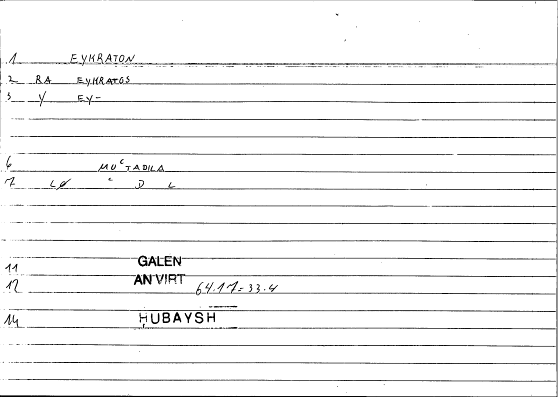 1 EYKRATON
2 RA EYKRATOS
3 Y EY-
6 MUʿTADILA
7 LØ ʿ D L
11 GALEN
12 AN VIRT 64.17=33.4
14 ḤUBAYSH